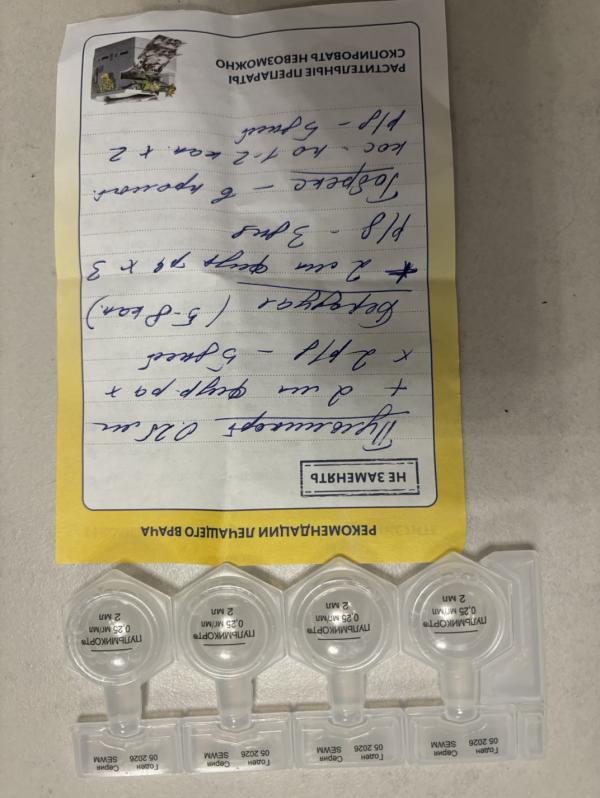 РЕКОМЕНДАЦИИ ЛЕЧАЩЕГО ВРАЧА
НЕ ЗАМЕНЯТЬ
Пульмикорт 0.25 мг
+ 2 мл физ. р-ра х
х 2 р/д - 5 дней
Беродуал (5-8 кап.)
+ 2 мл физ. р-ра х 3
р/д - 3 дня
Тобрекс - в промыт.
нос по 1-2 кап. х 2
р/д - 5 дней
РАСТИТЕЛЬНЫЕ ПРЕПАРАТЫ
СКОПИРОВАТЬ НЕВОЗМОЖНО
Годен 05 2026
Серия SEWM
Годен 05 2026
Серия SEWM
Годен 05 2026
Серия SEWM
Годен 05 2026
Серия SEWM
ПУЛЬМИКОРТ®
0,25 мг/мл
2 мл
ПУЛЬМИКОРТ®
0,25 мг/мл
2 мл
ПУЛЬМИКОРТ®
0,25 мг/мл
2 мл
ПУЛЬМИКОРТ®
0,25 мг/мл
2 мл